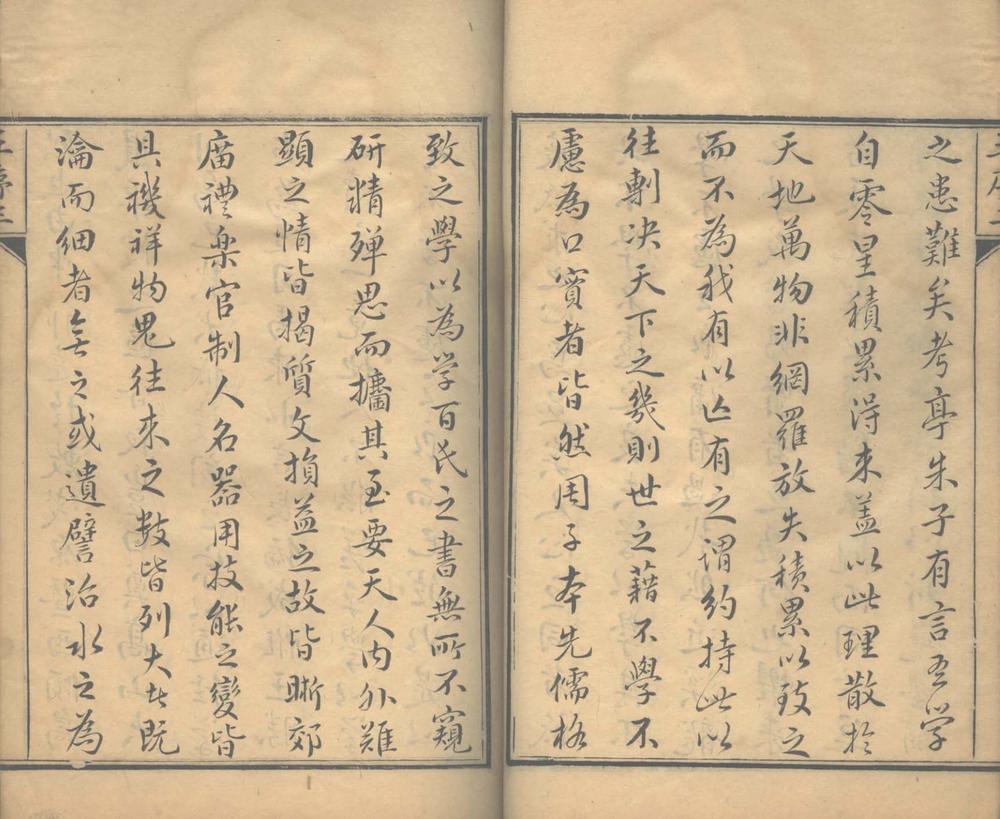 之患難矣考亭朱子有言吾學
自零星積累得来蓋以此理散扵
天地萬物非網羅放失積累以致之
而不為我有以此有之謂約持此以
往剸决天下之幾則世之藉不學不
慮為口實者皆然用子本先儒格
致之學以為学百氏之書無所不窺
研精殫思而攟其至要天人内外難
顯之情皆揭質文損益之故皆晣郊
庙禮楽官制人名器用技能之變皆
具禨祥物鬼往来之數皆列大者既
瀹而細者無之或遺譬治水之為